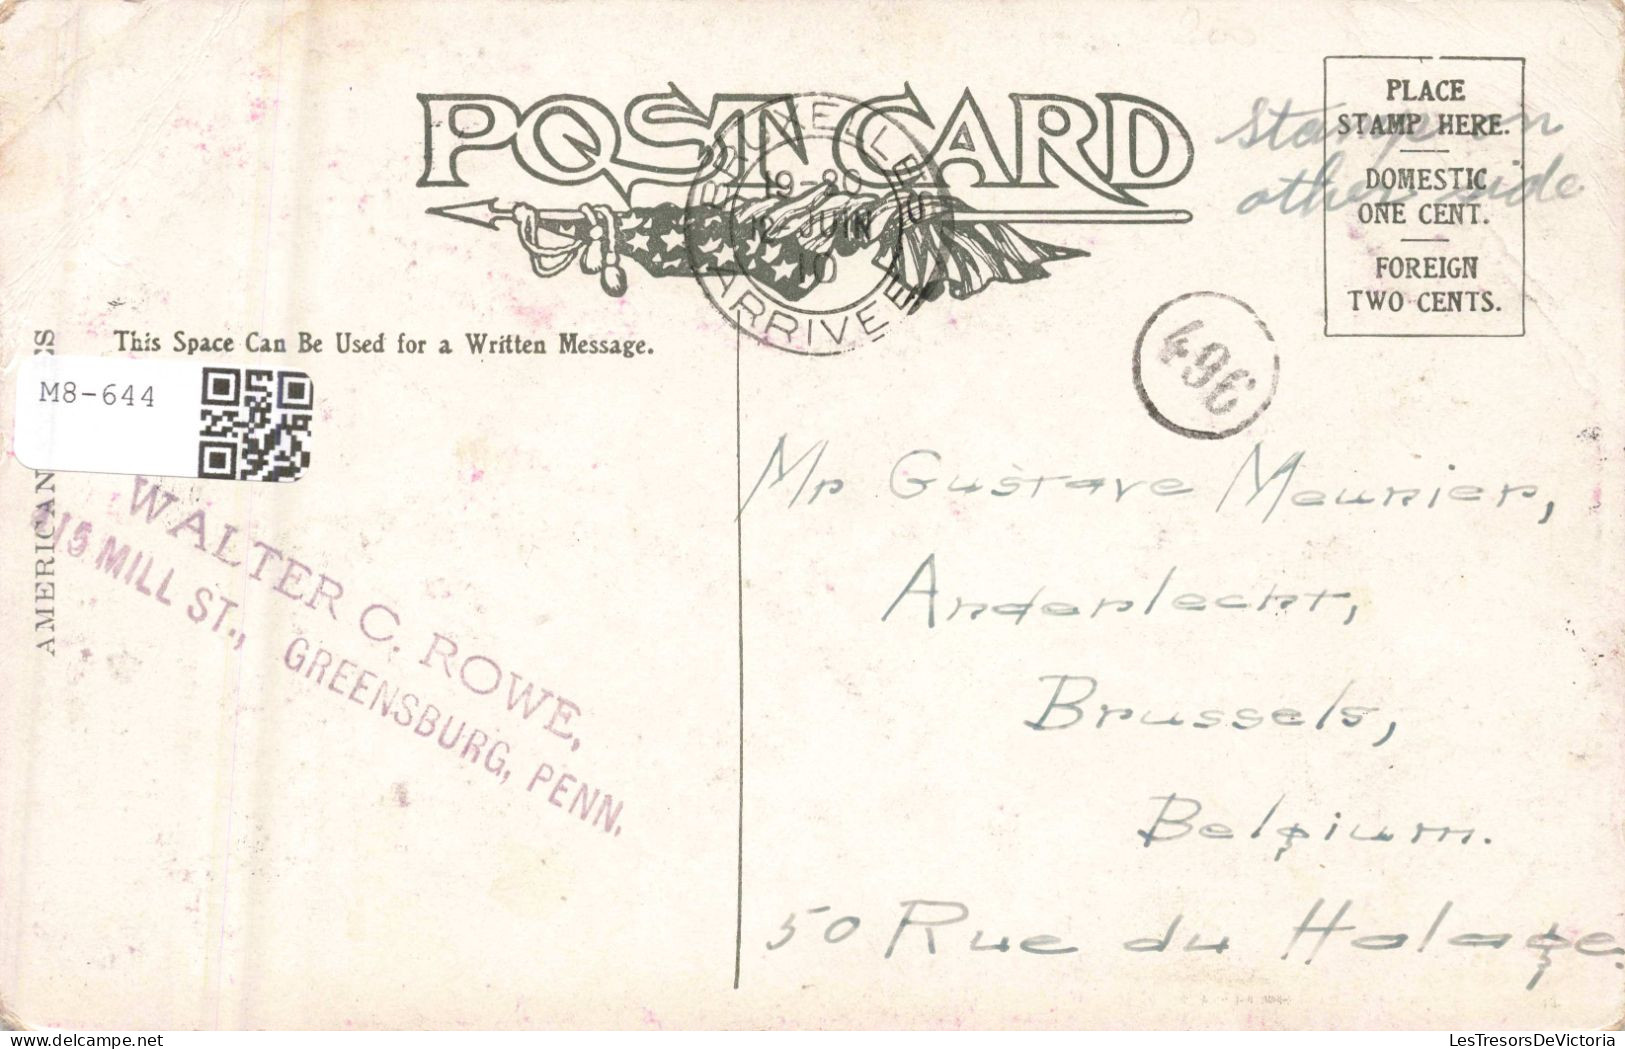 POST CARD
BRUXELLES
19-20
12-JUIN
10
ARRIVEE
PLACE
STAMP HERE.
DOMESTIC
ONE CENT.
FOREIGN
TWO CENTS.
Stamp on
other side
496
This Space Can Be Used for a Written Message.
M8-644
AMERICAN
WALTER C. ROWE,
MILL ST., GREENSBURG, PENN.
Mr Gustave Meunier,
Anderlecht,
Brussels,
Belgium.
50 Rue du Halage.
LesTresorsDeVictoria